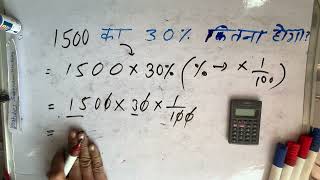 1500 का 30% कितना होगा?
= 1500 × 30% (% → × 1/100
= 1500 × 30 × 1/100
=